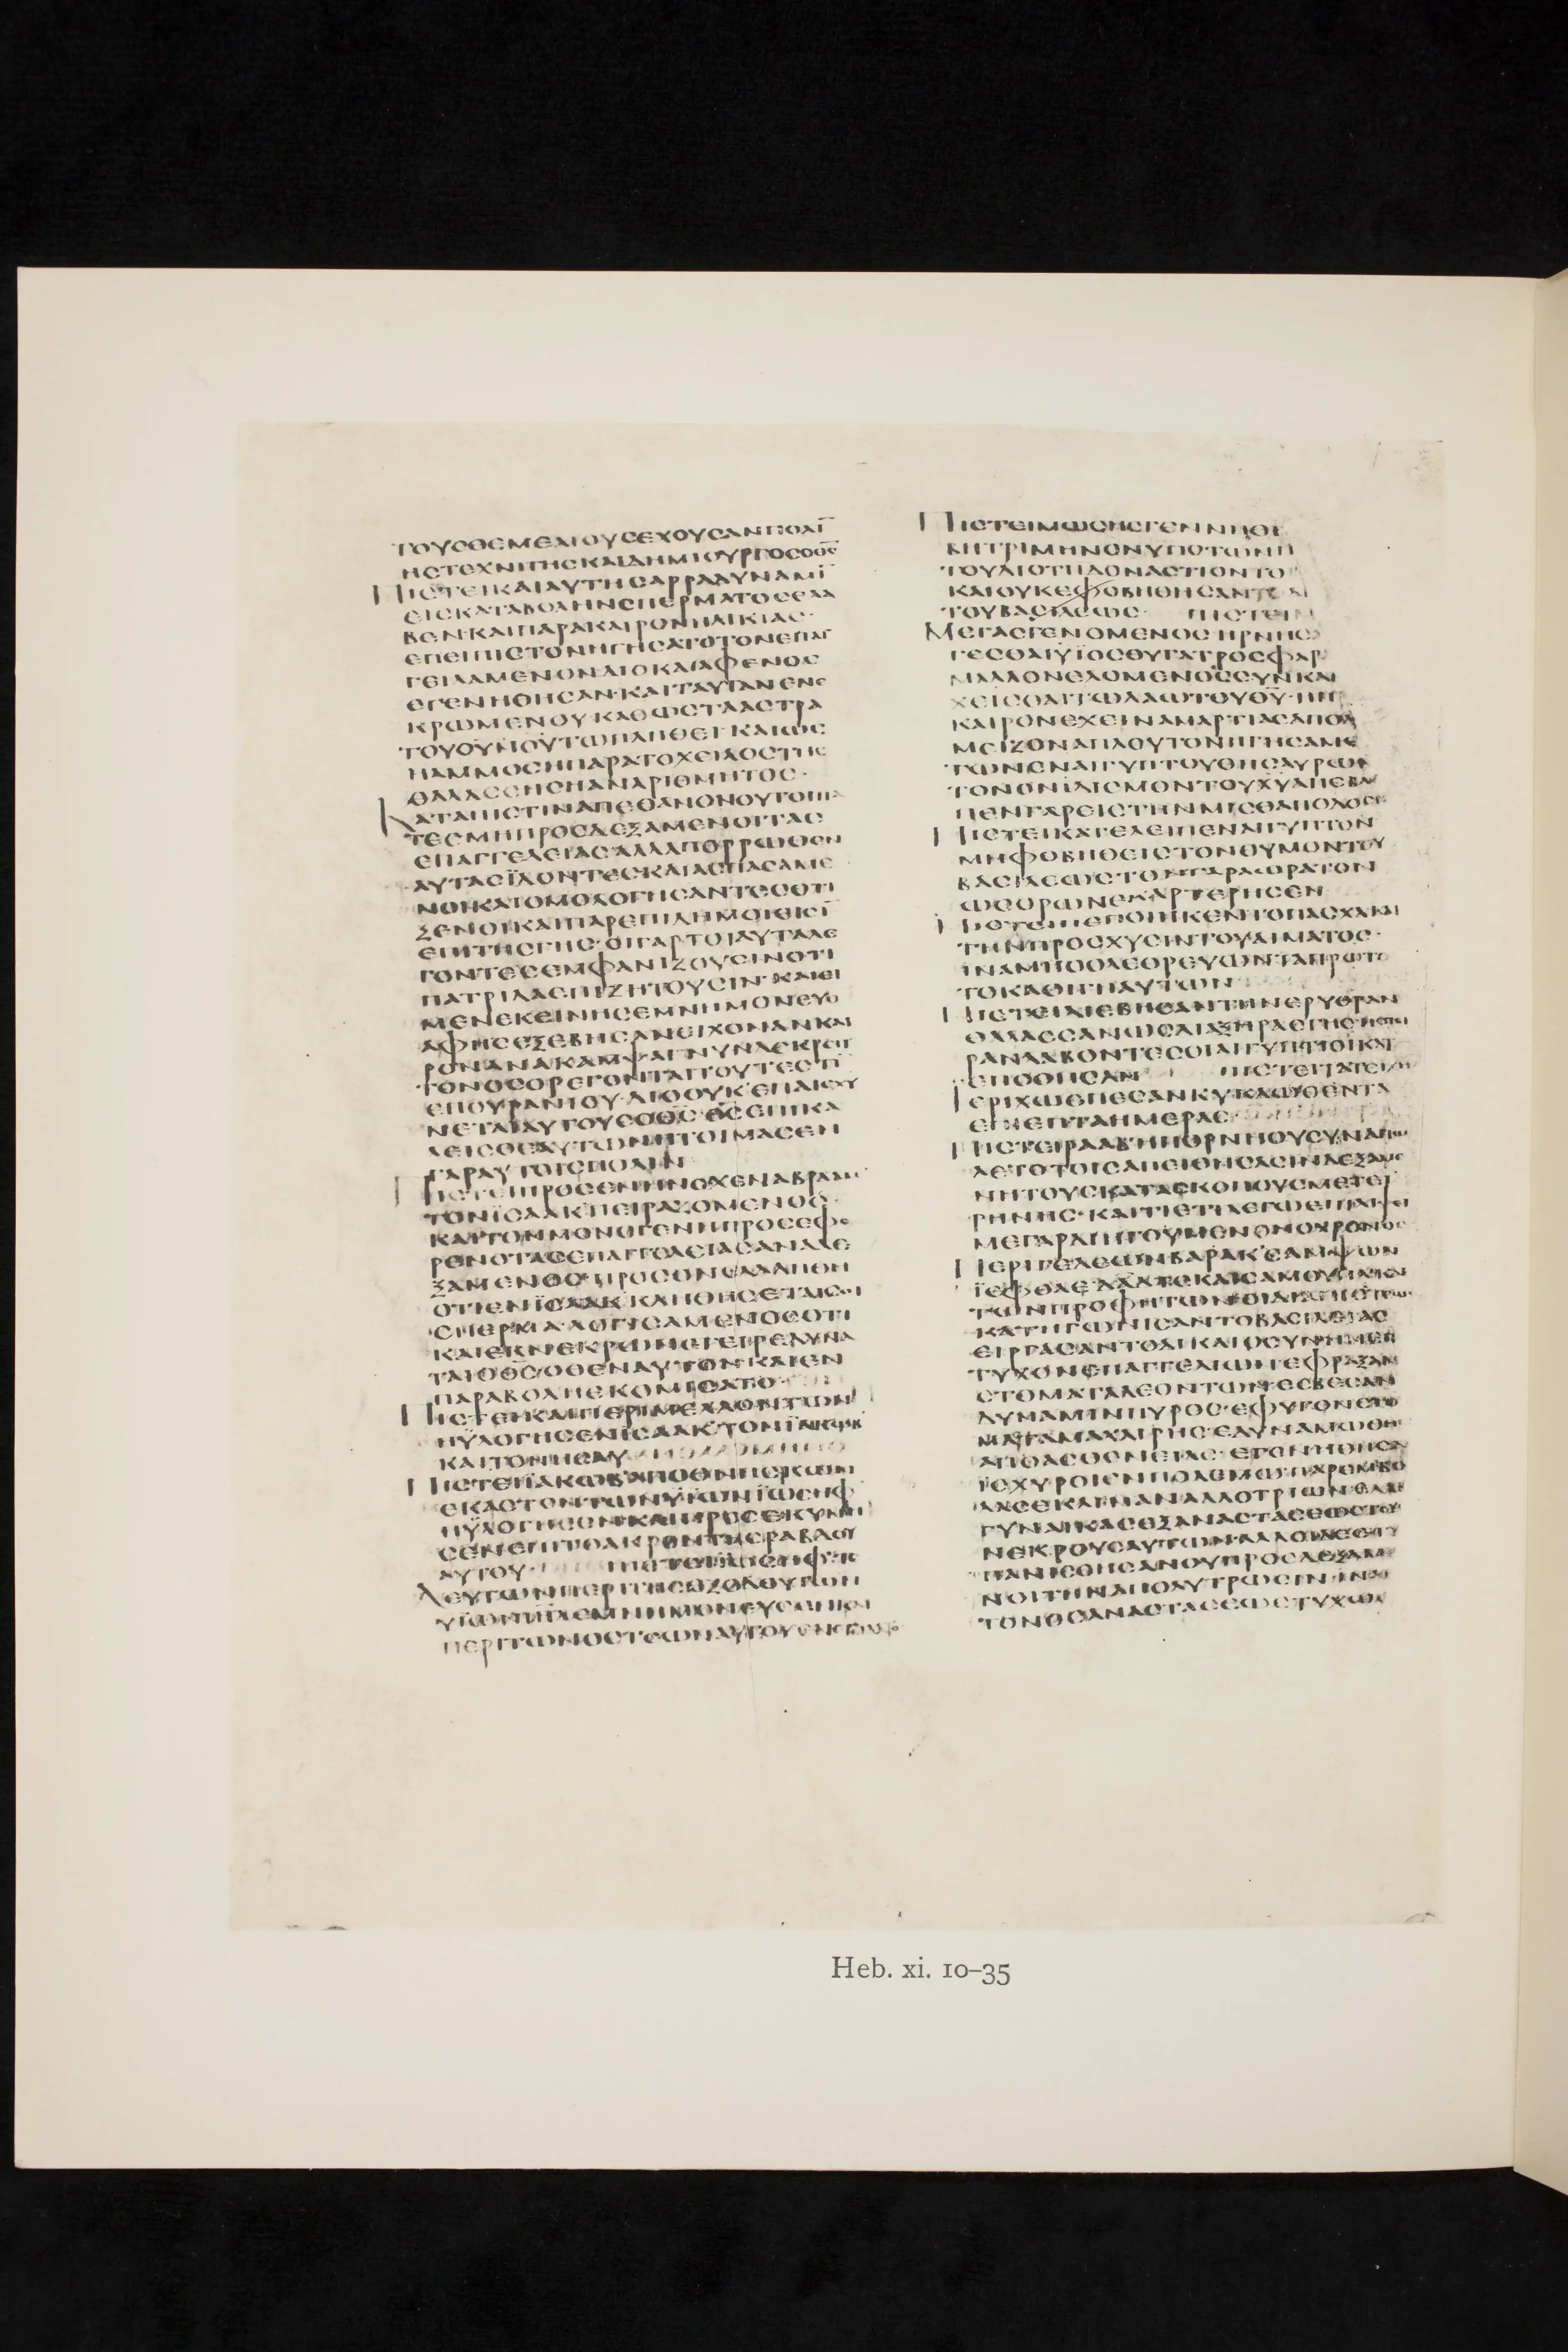 ΤΟΥϹΘΕΜΕΛΙΟΥϹΕΧΟΥϹΑΝΠΟΛΙ̅
ΗϹΤΕΧΝΙΤΗϹΚΑΙΔΗΜΙΟΥΡΓΟϹΟΘ̅Ϲ̅
ΠΙϹΤΕΙΚΑΙΑΥΤΗϹΑΡΡΑΔΥΝΑΜΙ̅
ΕΙϹΚΑΤΑΒΟΛΗΝϹΠΕΡΜΑΤΟϹΕΛΑ
ΒΕΝ·ΚΑΙΠΑΡΑΚΑΙΡΟΝΗΛΙΚΙΑϹ·
ΕΠΕΙΠΙϹΤΟΝΗΓΗϹΑΤΟΤΟΝΕΠΑΓ
ΓΕΙΛΑΜΕΝΟΝΔΙΟΚΑΙΑΦΕΝΟϹ
ΕΓΕΝΗΘΗϹΑΝ·ΚΑΙΤΑΥΤΑΝΕΝΕ
ΚΡΩΜΕΝΟΥΚΑΘΩϹΤΑΑϹΤΡΑ
ΤΟΥΟΥ̅Ν̅ΟΥ̅ΤΩΠΛΗΘΕΙΚΑΙΩϹ
ΗΑΜΜΟϹΗΠΑΡΑΤΟΧΕΙΛΟϹΤΗϹ
ΘΑΛΑϹϹΗϹΗΑΝΑΡΙΘΜΗΤΟϹ·
ΚΑΤΑΠΙϹΤΙΝΑΠΕΘΑΝΟΝΟΥΤΟΙΠΑ
ΤΕϹΜΗΠΡΟϹΔΕΞΑΜΕΝΟΙΤΑϹ
ΕΠΑΓΓΕΛΕΙΑϹΑΛΛΑΠΟΡΡΩΘΕΝ
ΑΥΤΑϹΪΔΟΝΤΕϹΚΑΙΑϹΠΑϹΑΜΕ
ΝΟΙΚΑΙΟΜΟΛΟΓΗϹΑΝΤΕϹΟΤΙ
ΞΕΝΟΙΚΑΙΠΑΡΕΠΙΔΗΜΟΙΕΙϹΙ̅
ΕΠΙΤΗϹΓΗϹ·ΟΙΓΑΡΤΟΙΑΥΤΑΛΕ
ΓΟΝΤΕϹΕΜΦΑΝΙΖΟΥϹΙΝΟΤΙ
ΠΑΤΡΙΔΑΕΠΙΖΗΤΟΥϹΙΝ·ΚΑΙΕΙ
ΜΕΝΕΚΕΙΝΗϹΕΜΝΗΜΟΝΕΥΟ
ΑΦΗϹΕΞΕΒΗϹΑΝΕΙΧΟΝΑΝΚΑΙ
ΡΟΝΑΝΑΚΑΜΨΑΙΝΥΝΔΕΚΡΕΙΤ
ΤΟΝΟϹΟΡΕΓΟΝΤΑΙΤΟΥΤΕϹΤΙ̅
ΕΠΟΥΡΑΝΙΟΥ·ΔΙΟΟΥΚΕΠΑΙϹΧΥ
ΝΕΤΑΙΑΥΤΟΥϹΟΘ̅Ϲ̅·Θ̅Ϲ̅ΕΠΙΚΑ
ΛΕΙϹΘΕΑΥΤΩΝΗΤΟΙΜΑϹΕΝ
ΓΑΡΑΥΤΟΙϹΠΟΛΙΝ
ΠΙϹΤΕΙΠΡΟϹΕΝΗΝΟΧΕΝΑΒΡΑΑΜ
ΤΟΝΪϹΑΑΚΠΕΙΡΑΖΟΜΕΝΟϹ·
ΚΑΙΤΟΝΜΟΝΟΓΕΝΗΠΡΟϹΕΦΕ
ΡΕΝΟΤΑϹΕΠΑΓΓΕΛΕΙΑϹΑΝΑΔΕ
ΞΑΜΕΝΟϹΠΡΟϹΟΝΕΛΑΛΗΘΗ
ΟΤΙΕΝΪϹΑΑΚΚΛΗΘΗϹΕΤΑΙϹΟΙ
ϹΠΕΡΜΑ·ΛΟΓΙϹΑΜΕΝΟϹΟΤΙ
ΚΑΙΕΚΝΕΚΡΩΝΕΓΕΙΡΕΔΥΝΑ
ΤΑΙΟΘ̅Ϲ̅ΟΘΕΝΑΥΤΟΝΚΑΙΕΝ
ΠΑΡΑΒΟΛΗΕΚΟΜΙϹΑΤΟ
ΠΙϹΤΕΙΚΑΙΠΕΡΙΜΕΛΛΟΝΤΩΝ
ΗΫΛΟΓΗϹΕΝΪϹΑΑΚΤΟΝΪΑΚΩΒ
ΚΑΙΤΟΝΗϹΑΥ
ΠΙϹΤΕΙΪΑΚΩΒΑΠΟΘΝΗϹΚΩΝ
ΕΚΑϹΤΟΝΤΩΝΫΪΩΝΪΩϹΗΦ
ΗΫΛΟΓΗϹΕΝΚΑΙΠΡΟϹΕΚΥΝΗ
ϹΕΝΕΠΙΤΟΑΚΡΟΝΤΗϹΡΑΒΔΟΥ
ΑΥΤΟΥ· ΠΙϹΤΕΙΪΩϹΗΦΤΕ
ΛΕΥΤΩΝΠΕΡΙΤΗϹΕΞΟΔΟΥΤΩΝ
ΥΪΩΝΪΗ̅Λ̅ΕΜΝΗΜΟΝΕΥϹΕΝΚΑΙ
ΠΕΡΙΤΩΝΟϹΤΕΩΝΑΥΤΟΥΕΝΕΤΙΛΑΤΟ
ΠΙϹΤΕΙΜΩϹΗϹΓΕΝΝΗΘΕΙ
ΒΗΤΡΙΜΗΝΟΝΥΠΟΤΩΝΠ
ΤΟΥΔΙΟΤΙΙΔΟΝΑϹΤΙΟΝΤΟ
ΚΑΙΟΥΚΕΦΟΒΗΘΗϹΑΝΤΟΔ
ΤΟΥΒΑϹΙΛΕΩϹ· ΠΙϹΤΕΙΜ
ΜΕΓΑϹΓΕΝΟΜΕΝΟϹΗΡΝΗϹΑ
ΓΕϹΘΑΙΫΪΟϹΘΥΓΑΤΡΟϹΦΑΡ
ΜΑΛΛΟΝΕΛΟΜΕΝΟϹϹΥΝΚΑ
ΧΕΙϹΘΑΙΤΩΛΑΩΤΟΥΘ̅Υ̅·ΗΠ
ΚΑΙΡΟΝΕΧΕΙΝΑΜΑΡΤΙΑϹΑΠΟΛ
ΜΕΙΖΟΝΑΠΛΟΥΤΟΝΗΓΗϹΑΜΕ
ΤΩΝΕΝΑΙΓΥΠΤΟΥΘΗϹΑΥΡΩΝ
ΤΟΝΟΝΙΔΙϹΜΟΝΤΟΥΧ̅Υ̅ΑΠΕΒΛΕ
ΠΕΝΓΑΡΕΙϹΤΗΝΜΙϹΘΑΠΟΔΟϹΙΑ
ΠΙϹΤΕΙΚΑΤΕΛΕΙΠΕΝΑΙΓΥΠΤΟΝ
ΜΗΦΟΒΗΘΕΙϹΤΟΝΘΥΜΟΝΤΟΥ
ΒΑϹΙΛΕΩϹΤΟΝΓΑΡΑΟΡΑΤΟΝ
ΩϹΟΡΩΝΕΚΑΡΤΕΡΗϹΕΝ
ΠΙϹΤΕΙΠΕΠΟΙΗΚΕΝΤΟΠΑϹΧΑΚΑΙ
ΤΗΝΠΡΟϹΧΥϹΙΝΤΟΥΑΙΜΑΤΟϹ·
ΙΝΑΜΗΟΟΛΕΘΡΕΥΩΝΤΑΠΡΩΤΟ
ΤΟΚΑΘΗΓΗΑΥΤΩΝ
ΠΙϹΤΕΙΔΙΕΒΗϹΑΝΤΗΝΕΡΥΘΡΑΝ
ΘΑΛΑϹϹΑΝΩϹΔΙΑΞΗΡΑϹΓΗϹΗϹΠΙ
ΡΑΝΛΑΒΟΝΤΕϹΟΙΑΙΓΥΠΤΙΟΙΚΑΤ
ΕΠΟΘΗϹΑΝ ΠΙϹΤΕΙΤΑΤΕΙΧΗ
ΙΕΡΙΧΩΕΠΕϹΑΝΚΥΚΛΩΘΕΝΤΑ
ΕΠΙΕΠΤΑΗΜΕΡΑϹ
ΠΙϹΤΕΙΡΑΑΒΗΠΟΡΝΗΟΥϹΥΝΑΠΩ
ΛΕΤΟΤΟΙϹΑΠΕΙΘΗϹΑϹΙΝΔΕΞΑΜΕ
ΝΗΤΟΥϹΚΑΤΑϹΚΟΠΟΥϹΜΕΤΕΙ
ΡΗΝΗϹ·ΚΑΙΤΙΕΤΙΛΕΓΩΕΠΙΛΙΨΕΙ
ΜΕΓΑΡΔΙΗΓΟΥΜΕΝΟΝΟΧΡΟΝΟϹ
ΠΕΡΙΓΕΔΕΩΝΒΑΡΑΚϹΑΜΨΩΝ
ΪΕΦΘΑΕΔΑΔΤΕΚΑΙϹΑΜΟΥΗΛΚΑΙ
ΤΩΝΠΡΟΦΗΤΩΝΟΙΔΙΑΠΙϹΤΕΩϹ
ΚΑΤΗΓΩΝΙϹΑΝΤΟΒΑϹΙΛΕΙΑϹ
ΕΙΡΓΑϹΑΝΤΟΔΙΚΑΙΟϹΥΝΗΝΕΠΕ
ΤΥΧΟΝΕΠΑΓΓΕΛΙΩΝΕΦΡΑΞΑΝ
ϹΤΟΜΑΤΑΛΕΟΝΤΩΝΕϹΒΕϹΑΝ
ΔΥΝΑΜΙΝΠΥΡΟϹ·ΕΦΥΓΟΝϹΤΟ
ΜΑΤΑΜΑΧΑΙΡΗϹΕΔΥΝΑΜΩΘΗ
ΑΠΟΑϹΘΕΝΕΙΑϹ·ΕΓΕΝΗΘΗϹΑΝ
ΪϹΧΥΡΟΙΕΝΠΟΛΕΜΩΠΑΡΕΜΒΟ
ΛΑϹΕΚΛΙΝΑΝΑΛΛΟΤΡΙΩΝΕΛΑΒ
ΓΥΝΑΙΚΑϹΕΞΑΝΑϹΤΑϹΕΩϹΤΟΥ
ΝΕΚΡΟΥϹΑΥΤΩΝΑΛΛΟΙΔΕΕΤΥ
ΠΑΝΙϹΘΗϹΑΝΟΥΠΡΟϹΔΕΞΑΜΕ
ΝΟΙΤΗΝΑΠΟΛΥΤΡΩϹΙΝΙΝΑ
ΤΟΝΘϹΑΝΑϹΤΑϹΕΩϹΤΥΧΩϹΙ
Heb. xi. 10–35